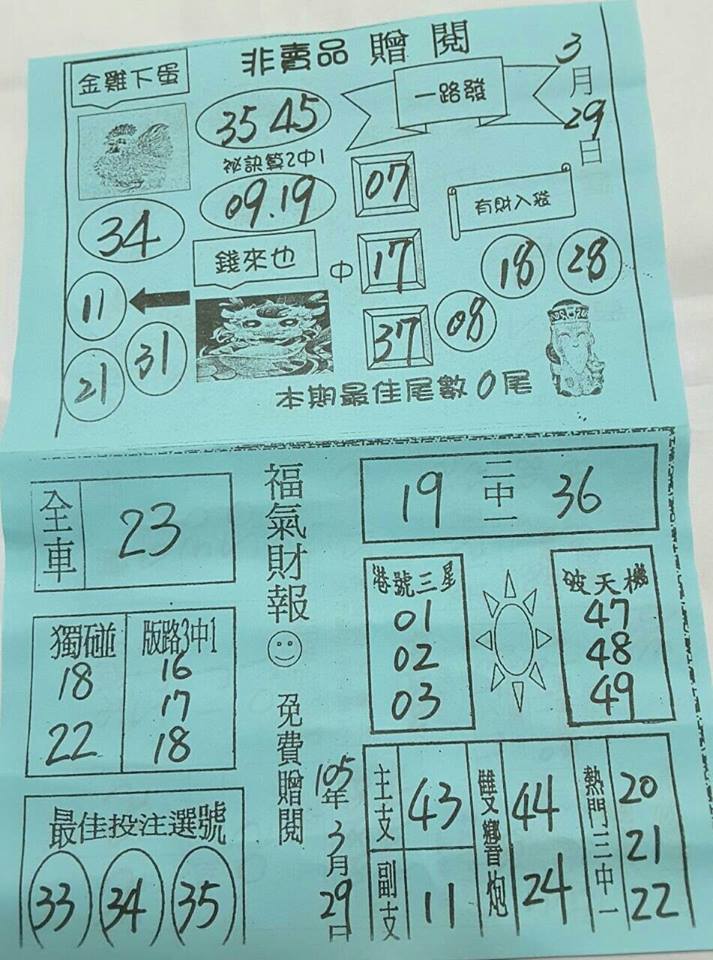 非賣品 贈閱
3月29日
金雞下蛋
35 45
祕訣算2中1
09.19
34
一路發
07
17
37
中
有財入發
18
28
08
錢來也
11
31
21
本期最佳尾數0尾
福氣財報
免費贈閱
105年3月29日
全車
23
獨碰
18
22
版路3中1
16
17
18
最佳投注選號
33
34
35
19
二中一
36
港號三星
01
02
03
破天機
47
48
49
主支
43
副支
11
雙響炮
44
24
熱門三中一
20
21
22